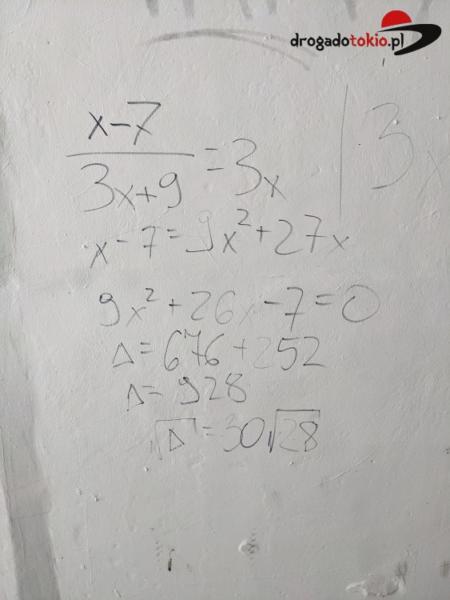 drogadotokio.pl
x-7
3x+9 = 3x | 3x
x-7=9x²+27x
9x²+26x-7=0
Δ=676+252
Δ=928
√Δ=30√28